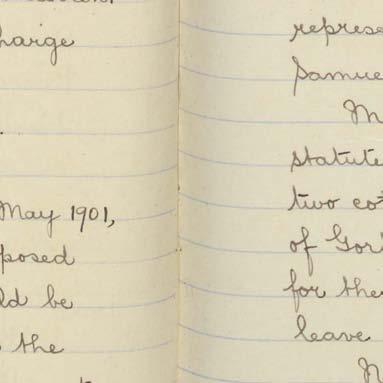 harge
May 1901,
posed
ld be
the
represe
Samue
M
statute
two cot
of Gor
for the
leave